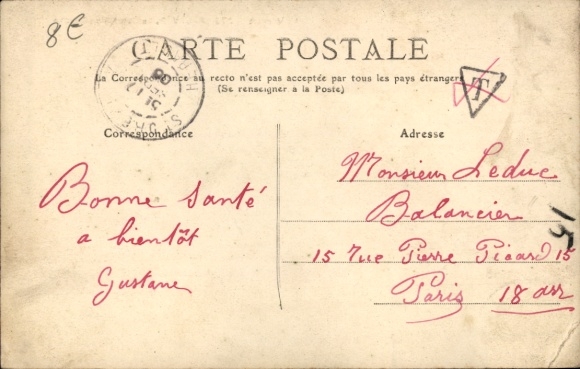 8€
CARTE POSTALE
La Correspondance au recto n'est pas acceptée par tous les pays étrangers
(Se renseigner à la Poste)
T
Correspondance
Adresse
Bonne Santé
a bientôt
Gustave
Monsieur Leduc
Balancier
15 rue Pierre Picard 15
Paris 18 arr
15